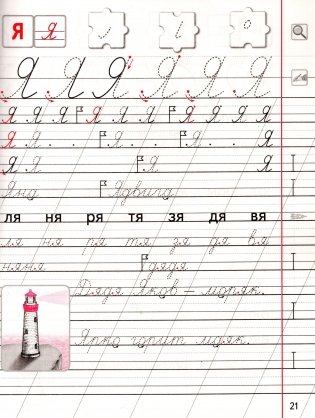 Я Я
Я Я Я Я Я Я
Я Я Я Я Я Я Я Я Я
Я Я . . Я . . Я . . Я
Я Я Я Я
Яна Ядвига
ля ня ря тя зя дя вя
ля ня ря тя зя дя вя
няня дядя
Дядя Яков – моряк.
Ярко горит маяк.
21